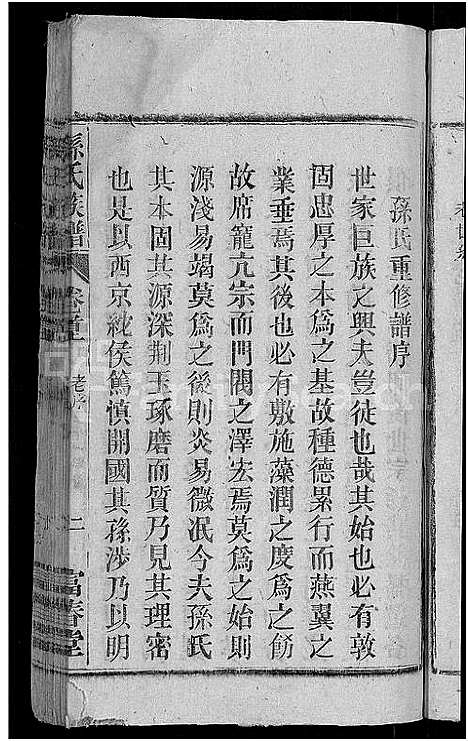 孫氏重修譜序
世家巨族之興夫豈徒也哉其始也必有敦
固忠厚之本為之基故種德累行而燕翼之
業垂焉其後也必有敷施藻潤之度為之飭
故席寵亢宗而門閥之澤宏焉莫為之始則
源淺易竭莫為之後則炎易微泯今夫孫氏
其本固其源深荆玉琢磨而質乃見其理密
也是以西京紞侯篤慎開國其孫涉乃以明
孫氏族譜
卷首
老序
二
富春堂